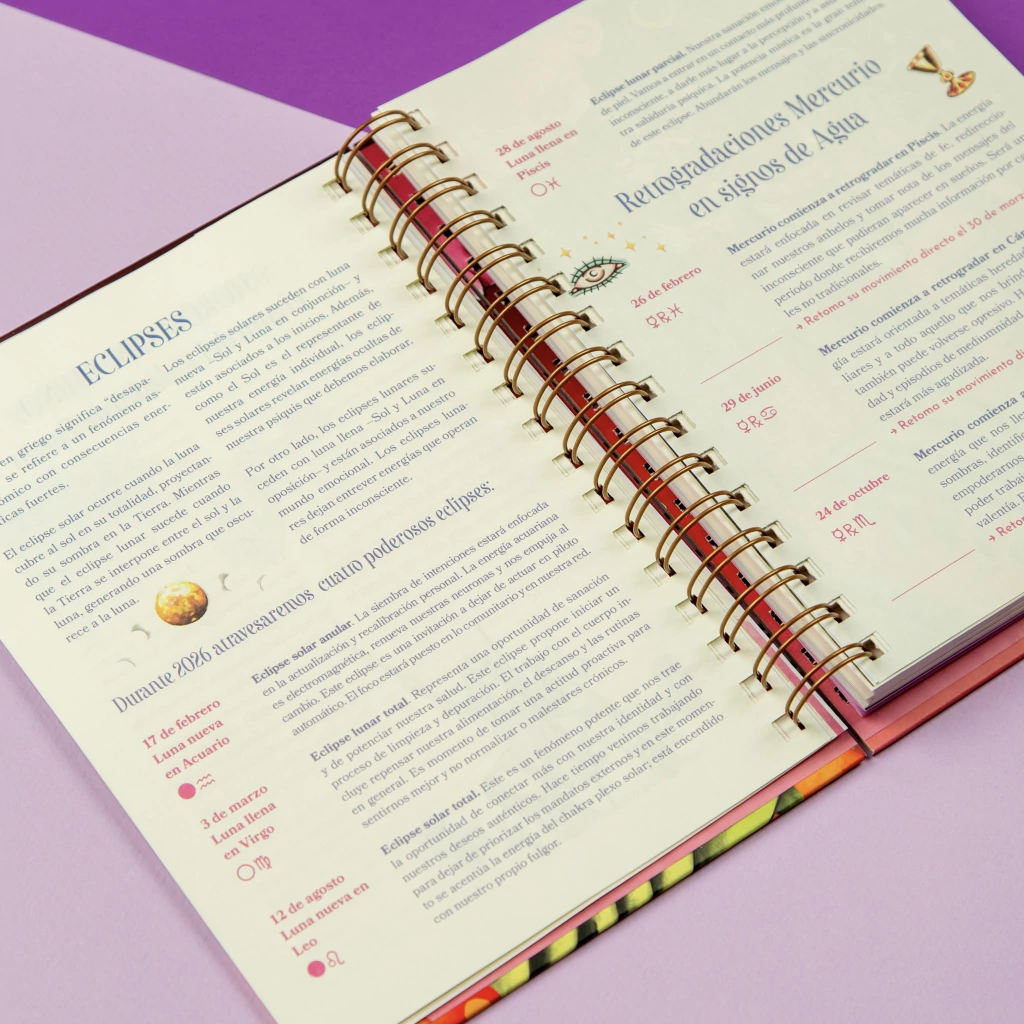 ECLIPSES
en griego significa “desapa-
se refiere a un fenómeno as-
ómico con consecuencias ener-
icas fuertes.
El eclipse solar ocurre cuando la luna
cubre al sol en su totalidad, proyectan-
do su sombra en la Tierra. Mientras
que el eclipse lunar sucede cuando
la Tierra se interpone entre el sol y la
luna, generando una sombra que oscu-
rece a la luna.
Los eclipses solares suceden con luna
nueva –Sol y Luna en conjunción– y
están asociados a los inicios. Además,
como el Sol es el representante de
nuestra energía individual, los eclip-
ses solares revelan energías ocultas de
nuestra psiquis que debemos elaborar.
Por otro lado, los eclipses lunares su-
ceden con luna llena –Sol y Luna en
oposición– y están asociados a nuestro
mundo emocional. Los eclipses luna-
res dejan entrever energías que operan
de forma inconsciente.
Durante 2026 atravesaremos cuatro poderosos eclipses:
17 de febrero
Luna nueva
en Acuario
Eclipse solar anular. La siembra de intenciones estará enfocada
en la actualización y recalibración personal. La energía acuariana
es electromagnética, renueva nuestras neuronas y nos empuja al
cambio. Este eclipse es una invitación a dejar de actuar en piloto
automático. El foco estará puesto en lo comunitario y en nuestra red.
3 de marzo
Luna llena
en Virgo
Eclipse lunar total. Representa una oportunidad de sanación
y de potenciar nuestra salud. Este eclipse propone iniciar un
proceso de limpieza y depuración. El trabajo con el cuerpo in-
cluye repensar nuestra alimentación, el descanso y las rutinas
en general. Es momento de tomar una actitud proactiva para
sentirnos mejor y no normalizar o malestares crónicos.
12 de agosto
Luna nueva en
Leo
Eclipse solar total. Este es un fenómeno potente que nos trae
la oportunidad de conectar más con nuestra identidad y con
nuestros deseos auténticos. Hace tiempo venimos trabajando
para dejar de priorizar los mandatos externos y en este momen-
to se acentúa la energía del chakra plexo solar; está encendido
con nuestro propio fulgor.
28 de agosto
Luna llena en
Piscis
Eclipse lunar parcial. Nuestra sanación
de piel. Vamos a entrar en un contacto más profundo
inconsciente, a darle más lugar a la percepción y a
tra sabiduría psíquica. La potencia mística es la gran
de este eclipse. Abundarán los mensajes y las sincronicidades.
Retrogradaciones Mercurio
en signos de Agua
26 de febrero
Mercurio comienza a retrogradar en Piscis. La energía
estará enfocada en revisar temáticas de fe, redireccio-
nar nuestros anhelos y tomar nota de los mensajes del
inconsciente que pudieran aparecer en sueños. Será un
período donde recibiremos mucha información por
les no tradicionales.
→ Retoma su movimiento directo el 30 de marz
29 de junio
Mercurio comienza a retrogradar en Cán
gía estará orientada a temáticas hereda
liares y a todo aquello que nos brind
también puede volverse opresivo. H
dad y episodios de mediumnidad
estará más agudizada.
→ Retoma su movimiento di
24 de octubre
Mercurio comienza
energía que nos lle
sombras, identific
empoderarnos
poder trabaj
valentía.
→ Reto